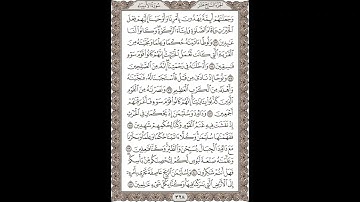 الجزء السابع عشر سورة الأنبياء
وَجَعَلْنَٰهُمْ أَئِمَّةً يَهْدُونَ بِأَمْرِنَا وَأَوْحَيْنَآ إِلَيْهِمْ فِعْلَ
ٱلْخَيْرَٰتِ وَإِقَامَ ٱلصَّلَوٰةِ وَإِيتَآءَ ٱلزَّكَوٰةِ وَكَانُوا۟ لَنَا
عَٰبِدِينَ ٧٣ وَلُوطًا ءَاتَيْنَٰهُ حُكْمًا وَعِلْمًا وَنَجَّيْنَٰهُ مِنَ
ٱلْقَرْيَةِ ٱلَّتِى كَانَت تَّعْمَلُ ٱلْخَبَٰٓئِثَ إِنَّهُمْ كَانُوا۟ قَوْمَ سَوْءٍ
فَٰسِقِينَ ٧٤ وَأَدْخَلْنَٰهُ فِى رَحْمَتِنَآ إِنَّهُۥ مِنَ ٱلصَّٰلِحِينَ
٧٥ وَنُوحًا إِذْ نَادَىٰ مِن قَبْلُ فَٱسْتَجَبْنَا لَهُۥ فَنَجَّيْنَٰهُ
وَأَهْلَهُۥ مِنَ ٱلْكَرْبِ ٱلْعَظِيمِ ٧٦ وَنَصَرْنَٰهُ مِنَ
ٱلْقَوْمِ ٱلَّذِينَ كَذَّبُوا۟ بِـَٔايَٰتِنَآ إِنَّهُمْ كَانُوا۟ قَوْمَ سَوْءٍ فَأَغْرَقْنَٰهُمْ
أَجْمَعِينَ ٧٧ وَدَاوُۥدَ وَسُلَيْمَٰنَ إِذْ يَحْكُمَانِ فِى ٱلْحَرْثِ
إِذْ نَفَشَتْ فِيهِ غَنَمُ ٱلْقَوْمِ وَكُنَّا لِحُكْمِهِمْ شَٰهِدِينَ ٧٨
فَفَهَّمْنَٰهَا سُلَيْمَٰنَ وَكُلًّا ءَاتَيْنَا حُكْمًا وَعِلْمًا وَسَخَّرْنَا
مَعَ دَاوُۥدَ ٱلْجِبَالَ يُسَبِّحْنَ وَٱلطَّيْرَ وَكُنَّا فَٰعِلِينَ ٧٩
وَعَلَّمْنَٰهُ صَنْعَةَ لَبُوسٍ لَّكُمْ لِتُحْصِنَكُم مِّنۢ بَأْسِكُمْ
فَهَلْ أَنتُمْ شَٰكِرُونَ ٨٠ وَلِسُلَيْمَٰنَ ٱلرِّيحَ عَاصِفَةً تَجْرِى بِأَمْرِهِۦٓ
إِلَى ٱلْأَرْضِ ٱلَّتِى بَٰرَكْنَا فِيهَا وَكُنَّا بِكُلِّ شَىْءٍ عَٰلِمِينَ ٨١
٣٢٨